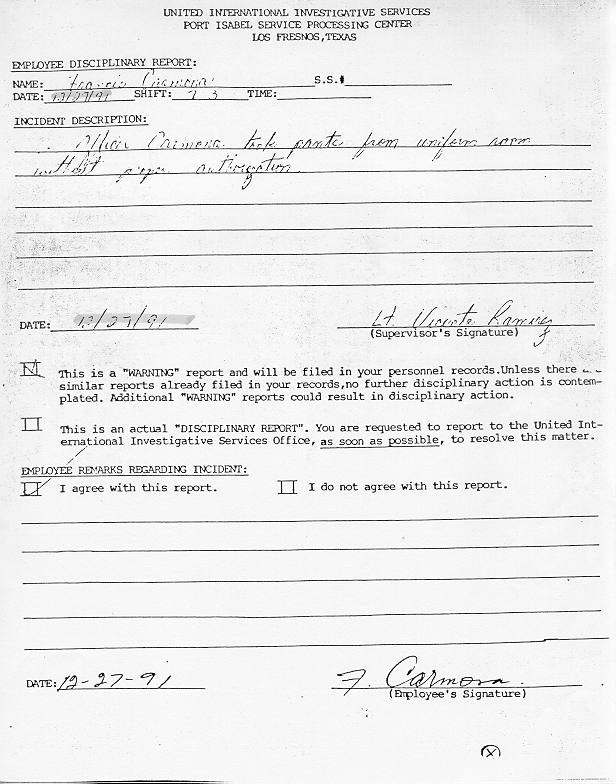 UNITED INTERNATIONAL INVESTIGATIVE SERVICES
PORT ISABEL SERVICE PROCESSING CENTER
LOS FRESNOS,TEXAS
EMPLOYEE DISCIPLINARY REPORT:
NAME: Francis Carmona S.S.#
DATE: 12/27/91 SHIFT: 7 3 TIME:
INCIDENT DESCRIPTION:
Officer Carmona took pants from uniform room
without proper authorization.
DATE: 12/27/91 Lt. Vicente Ramirez
(Supervisor's Signature)
This is a "WARNING" report and will be filed in your personnel records.Unless there
similar reports already filed in your records,no further disciplinary action is contem-
plated. Additional "WARNING" reports could result in disciplinary action.
This is an actual "DISCIPLINARY REPORT". You are requested to report to the United Int-
ernational Investigative Services Office, as soon as possible, to resolve this matter.
EMPLOYEE REMARKS REGARDING INCIDENT:
I agree with this report. I do not agree with this report.
DATE: 12-27-91 F. Carmona
(Employee's Signature)
X